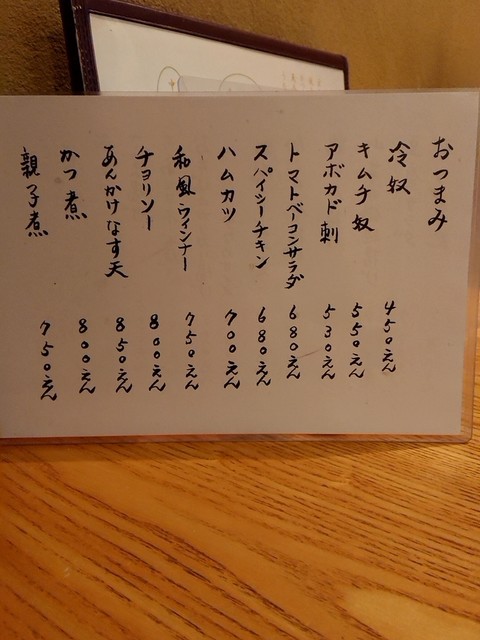 おつまみ
冷奴 450えん
キムチ奴 550えん
アボカド刺 530えん
トマトベーコンサラダ 680えん
スパイシーチキン 680えん
ハムカツ 700えん
和風ウィンナー 750えん
チョリソー 800えん
あんかけなす天 850えん
かつ煮 800えん
親子煮 750えん